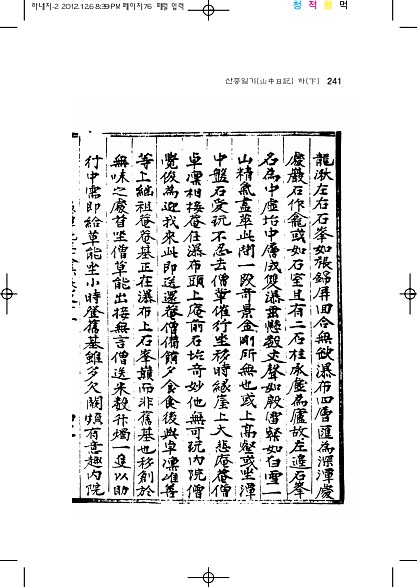 하내지-2 2012.12.6 8:39 PM 페이지76
청 적 황 먹
산중일기(山中日記) 하(下) 241
龍湫左右石峯如張錦屏回合無欲瀑布四層匯為深潭處
處嚴石作龕或如石室且有二石柱承虛為廬故左邊石峯
名為中虛坮中層成雙瀑垂懸數丈聲如殷雷 如白雪一
山精氣盡萃此間一段奇景金剛所無也或上高壑或坐潭
中盤石愛玩不忍去僧輩催行坐移時緣崖上大悲庵庵僧
卓凜相接庵在瀑布頭上庵前石坮奇妙他無可玩內院僧
覺俊為迎我來此即送還庵僧備饋夕食食後與卓凜唯尊
等上繼祖庵庵基正在瀑布上石峯巓而非舊基也移創於
無味之處首坐僧草能出接無言僧送米 升燭一 以助
行中需即給草能坐小時登舊基雖多欠闕頗有意趣內院